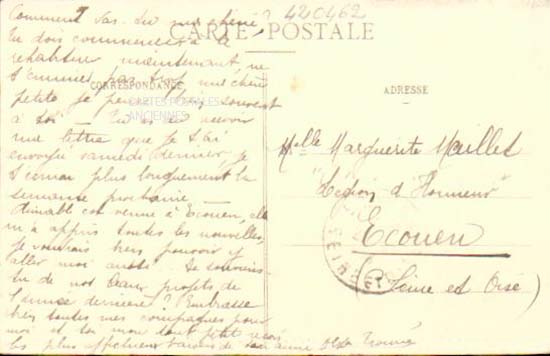 Comment vas-tu ma chérie?
420462
CARTE POSTALE
Tu dois commencer à te
rehabituer maintenant, ne
t'ennuie pas trop, ma chère
CORRESPONDANCE
ADRESSE
petite je pense bien souvent
CARTES POSTALES
ANCIENNES
à toi — Tu as du recevoir
une lettre que je t'ai
envoyée samedi dernier, je
t'écrirai plus longuement la
semaine prochaine —
est venue à Ecouen, elle
m'a appris toutes les nouvelles,
je voudrais bien pouvoir y
aller moi aussi. Te souviens
tu de nos beaux projets de
l'année dernière? Embrasse
bien toutes mes compagnes pour
moi et toi mon tout petit reçois
les plus affectueux baisers de ton amie
Melle Marguerite Maillet
"Légion d'Honneur"
Ecouen
(Seine et Oise)